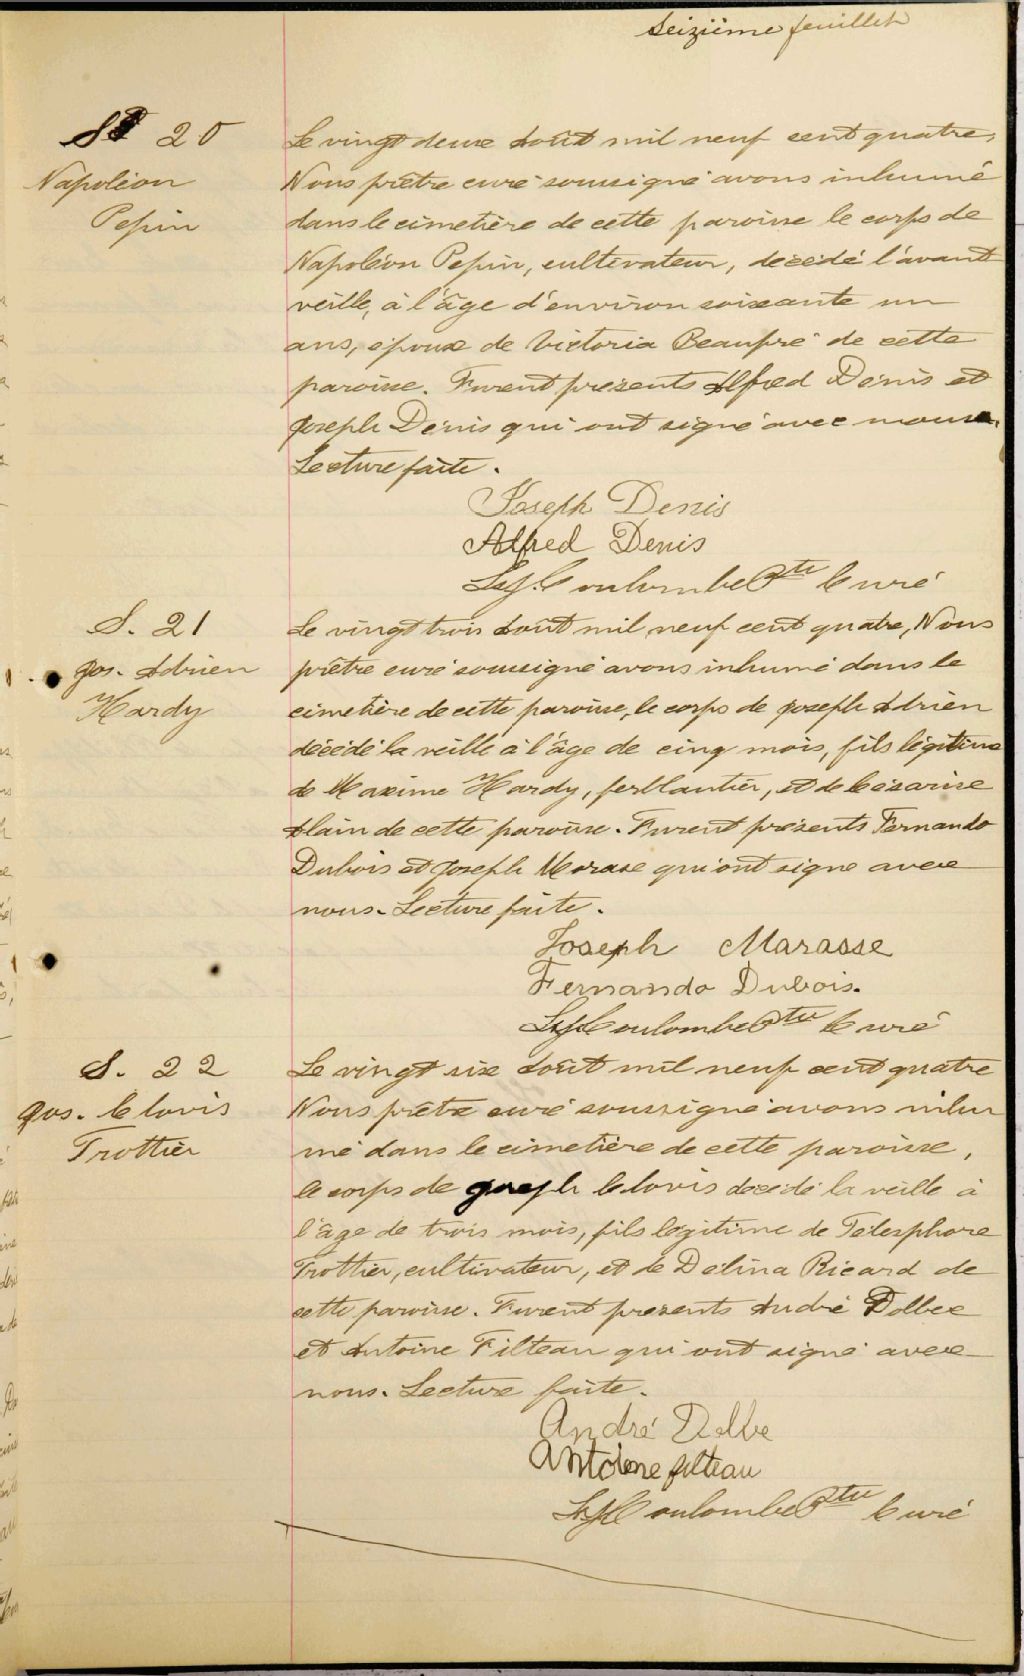 Seizième feuillet
S. 20
Napoléon
Pepin
Le vingt deux Août mil neuf cent quatre,
Nous prêtre curé soussigné avons inhumé
dans le cimetière de cette paroisse le corps de
Napoléon Pepin, cultivateur, décédé l'avant
veille, à l'âge d'environ soixante un
ans, époux de Victoria Beaupré de cette
paroisse. Furent présents Alfred Denis et
Joseph Denis qui ont signé avec nous.
Lecture faite.
Joseph Denis
Alfred Denis
Coulombe Ptre Curé
S. 21
Jos. Adrien
Hardy
Le vingt trois Août mil neuf cent quatre, Nous
prêtre curé soussigné avons inhumé dans le
cimetière de cette paroisse, le corps de Joseph Adrien
décédé la veille à l'âge de cinq mois, fils légitime
de Maxime Hardy, ferblantier, et de Césarise
Alain de cette paroisse. Furent présents Fernando
Dubois et Joseph Morase qui ont signé avec
nous. Lecture faite.
Joseph Marasse
Fernando Dubois.
Coulombe Ptre Curé
S. 22
Jos. Clovis
Trottier
Le vingt six Août mil neuf cent quatre
Nous prêtre curé soussigné avons inhu
mé dans le cimetière de cette paroisse,
le corps de Joseph Clovis décédé la veille à
l'âge de trois mois, fils légitime de Télesphore
Trottier, cultivateur, et de Délina Ricard de
cette paroisse. Furent presents André Dolbec
et Antoine Filteau qui ont signé avec
nous. Lecture faite.
André Dolbe
Antoine filteau
Coulombe Ptre Curé